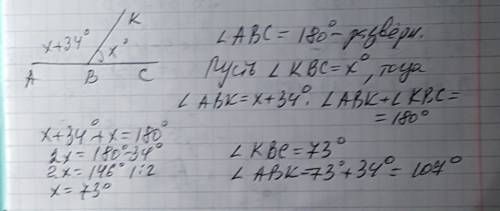 K
x+34°
x°
A B C
∠ABC = 180° – развёрн.
Пусть ∠KBC = x°, тогда
∠ABK = x+34°. ∠ABK+∠KBC =
= 180°
x+34°+x = 180°
2x = 180°-34°
2x = 146° |:2
x = 73°
∠KBC = 73°
∠ABK = 73°+34° = 107°